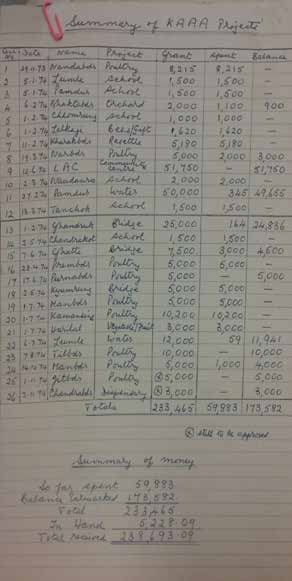 Summary of KAAA Projects
Date Name Project Grant Spent Balance
1 29.11.73 Nandabds Poultry 8,215 8,215 —
2 5.1.74 Lumle School 1,500 1,500 —
3 5.1.74 Pamdur School 1,500 1,500 —
4 6.2.74 Bhaktabds Orchard 2,000 1,100 900
5 1.2.74 Chhomrung School 1,000 1,000 —
6 1.2.74 1,620 1,620 —
7 11.2.74 Kharkabds 5,180 5,180 —
8 19.3.74 Narbds Poultry 5,000 2,000 3,000
9 12.6.74 LAC Community centre 51,750 — 51,750
10 2.3.74 School 2,000 2,000 —
11 27.2.74 Pamdur Water 50,000 345 49,655
12 13.3.74 Tanchok School 1,500 1,500 —
13 1.2.74 Ghandruk Bridge 25,000 164 24,836
14 2.5.74 Chandrakot School 1,500 1,500 —
15 7.6.74 Ghatte Bridge 7,500 3,000 4,500
16 23.4.74 Prembds Poultry 5,000 5,000 —
17 17.6.74 Purnabds Poultry 5,000 — 5,000
18 2.5.74 Kyumrung Bridge 5,000 5,000 —
19 1.7.74 Manbds Poultry 5,000 5,000 —
20 1.7.74 Poultry 10,200 10,200 —
21 1.7.74 3,000 3,000 —
22 6.7.74 Lumle Water 12,000 59 11,941
23 7.8.74 Tulbds Poultry 10,000 — 10,000
24 Manbds Poultry 5,000 1,000 4,000
25 1.11.74 Jitbds Poultry 5,000 — 5,000
26 2.11.74 Chandrabds Dispensary 3,000 — 3,000
Totals 233,465 59,883 173,582
still to be approved
Summary of money
So far spent 59,883
Balance earmarked 173,582
Total 233,465
In Hand 5,228.09
Total received 238,693.09